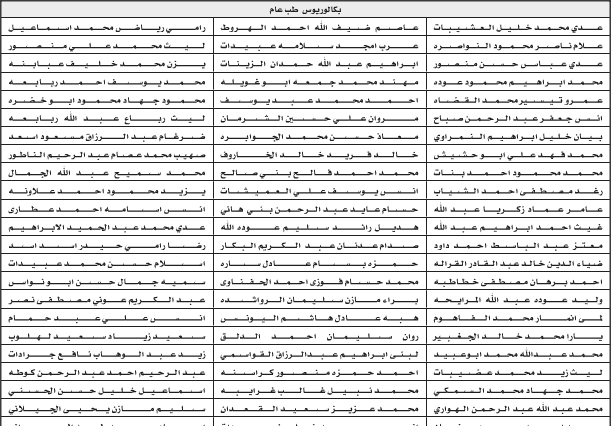 بكالوريوس طب عام
عدي محمد خليل العشيبات
عاصم ضيف الله احمد الهروط
رامي رياض محمد اسماعيل
علام ناصر محمود النواصره
عرب امجد سلامه عبيدات
ليث محمد علي منصور
عدي عباس حسن منصور
ابراهيم عبد الله حمدان الزينات
يزن محمد خليف عبابنه
محمد ابراهيم محمود عوده
مهند محمد جمعه ابو غويله
محمد يوسف احمد ربابعه
عمرو تيسير محمد القضاه
احمد محمد عبد يوسف
محمود جهاد محمود ابو خضره
انس جعفر عبد الرحمن صباح
مروان علي حسين الشرمان
ليث رباع عبد الله ربابعه
بيان خليل ابراهيم النمراوي
معاذ حسن محمد الجوابره
ضرغام عبد الرزاق مسعود اسعد
محمد فهد علي ابو حشيش
خالد فريد خالد الخاروف
صهيب محمد عصام عبد الرحيم الناطور
محمد محمود احمد بنات
محمد احمد فالح بني صالح
محمد سميح عبد الله الجمال
رغد مصطفى احمد الشياب
انس يوسف علي العميشات
يزيد محمود احمد علاونه
عامر عماد زكريا عبد الله
حسام عايد عبد الرحمن بني هاني
انس اسامه احمد عطاري
غيث احمد ابراهيم عبد الله
هديل رائد سليم عوده الله
عدي محمد عبد الحميد الابراهيم
معتز عبد الباسط احمد داود
صدام عدنان عبد الكريم البكار
رضا رامي حيدر اسد اسد
ضياء الدين خالد عبد القادر القراله
حمزه بسام عادل ساره
اسلام حسن محمد عبيدات
احمد برهان مصطفى خطاطبه
محمد حسام فوزي احمد الحفناوي
سميه جمال حسن ابو نواس
وليد عوده عبد الله المرايحه
براء مازن سليمان الرواشده
عبد الكريم عوني مصطفى نصر
لمى انمار محمد الفاهوم
هبه عادل هاشم اليونس
انس علي عبد حمام
يارا محمد خالد الجغبير
روان سليمان احمد الدلق
سعيد زياد سعيد لهلوب
محمد عبدالله محمد ابوعبيد
لبنى ابراهيم عبدالرزاق القواسمي
زيد عبد الوهاب نافع جرادات
ليث زيد محمد عضيبات
احمد حمزه منصور كراسنه
عبد الرحيم احمد عبد الرحمن كوطه
محمد جهاد محمد السمكي
محمد نبيل غالب غرايبه
اسماعيل خليل حسن الحسني
محمد عبد الله عبد الرحمن الهواري
محمد عزيز سعيد القعدان
سليم مازن يحيى الجيلاني